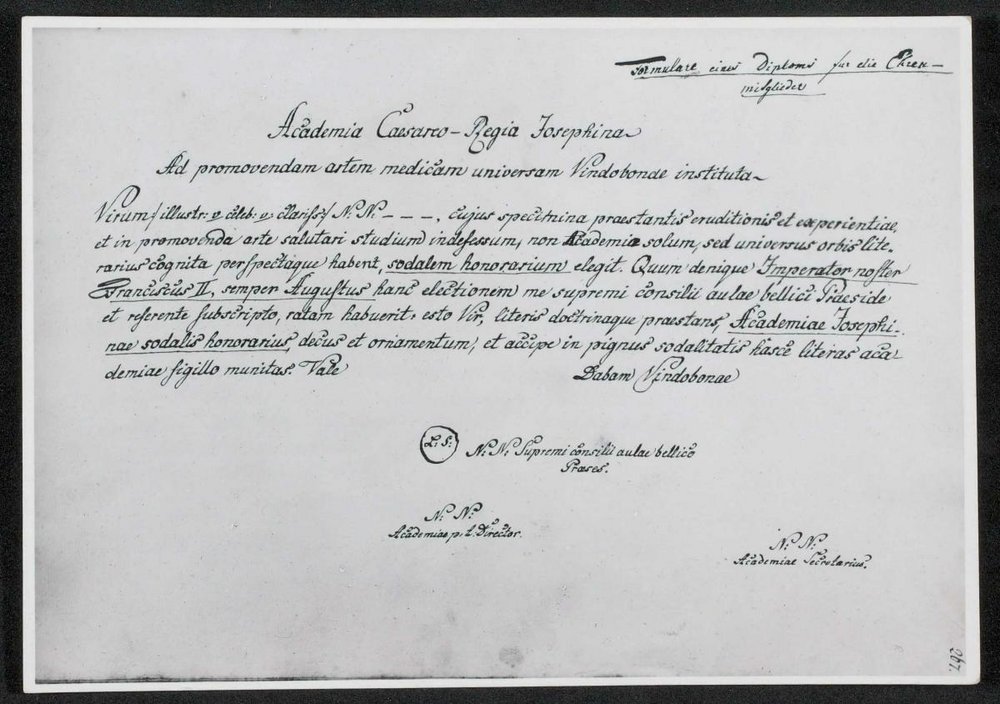 Formulare eines Diploms fur die Ehren-
mitglieder
Academia Caesareo-Regia Josephina
Ad promovendam artem medicam universam Vindobonae instituta
Virum/illustr: v celeb: v: clariss:/ N: N: - - - -, cujus specimina praestantis eruditionis et experientiae,
et in promovenda arte salutari studium indefessum, non Academia solum, sed universus orbis lite,
rarius cognita perspectaque habent, sodalem honorarium elegit. Quum denique Imperator noster
Franciscus II, semper Augustus hanc electionem me supremi consilii aulae bellici Praeside
et referente subscripto, ratam habuerit, esto Vir, literis doctrinaque praestans, Academiae Josephi-
nae sodalis honorarius, decus et ornamentum, et accipe in pignus sodalitatis hasce literas aca
demiae sigillo munitas. Vale Dabam Vindobonae
L: S:
N: N: Supremi consilii aulae bellico
Praeses.
N: N:
Academiae p. t. Director.
N: N:
Academiae Secretarius.
267